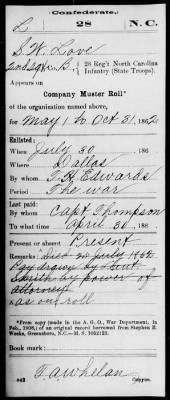 Confederate.
L 28 N.C.
S. W. Love
2nd Sgt Co. B., 28 Reg't North Carolina
Infantry (State Troops).
Appears on
Company Muster Roll*
of the organization named above,
for May 1 to Oct 31, 1862.
Enlisted:
When July 30, 186
Where Dallas
By whom T. H. Edwards
Period The war
Last paid:
By whom Capt Thompson
To what time April 30, 186
Present or absent Present
Remarks: Died 20 July 1862
Pay drawn by
Smith by power of
attorney
x as on roll
*From copy (made in the A. G. O., War Department, in
Feb., 1906,) of an original record borrowed from Stephen B.
Weeks, Greensboro, N.C.—M. S. 1052128.
Book mark:
T. A. Whelan
642 Copyist.